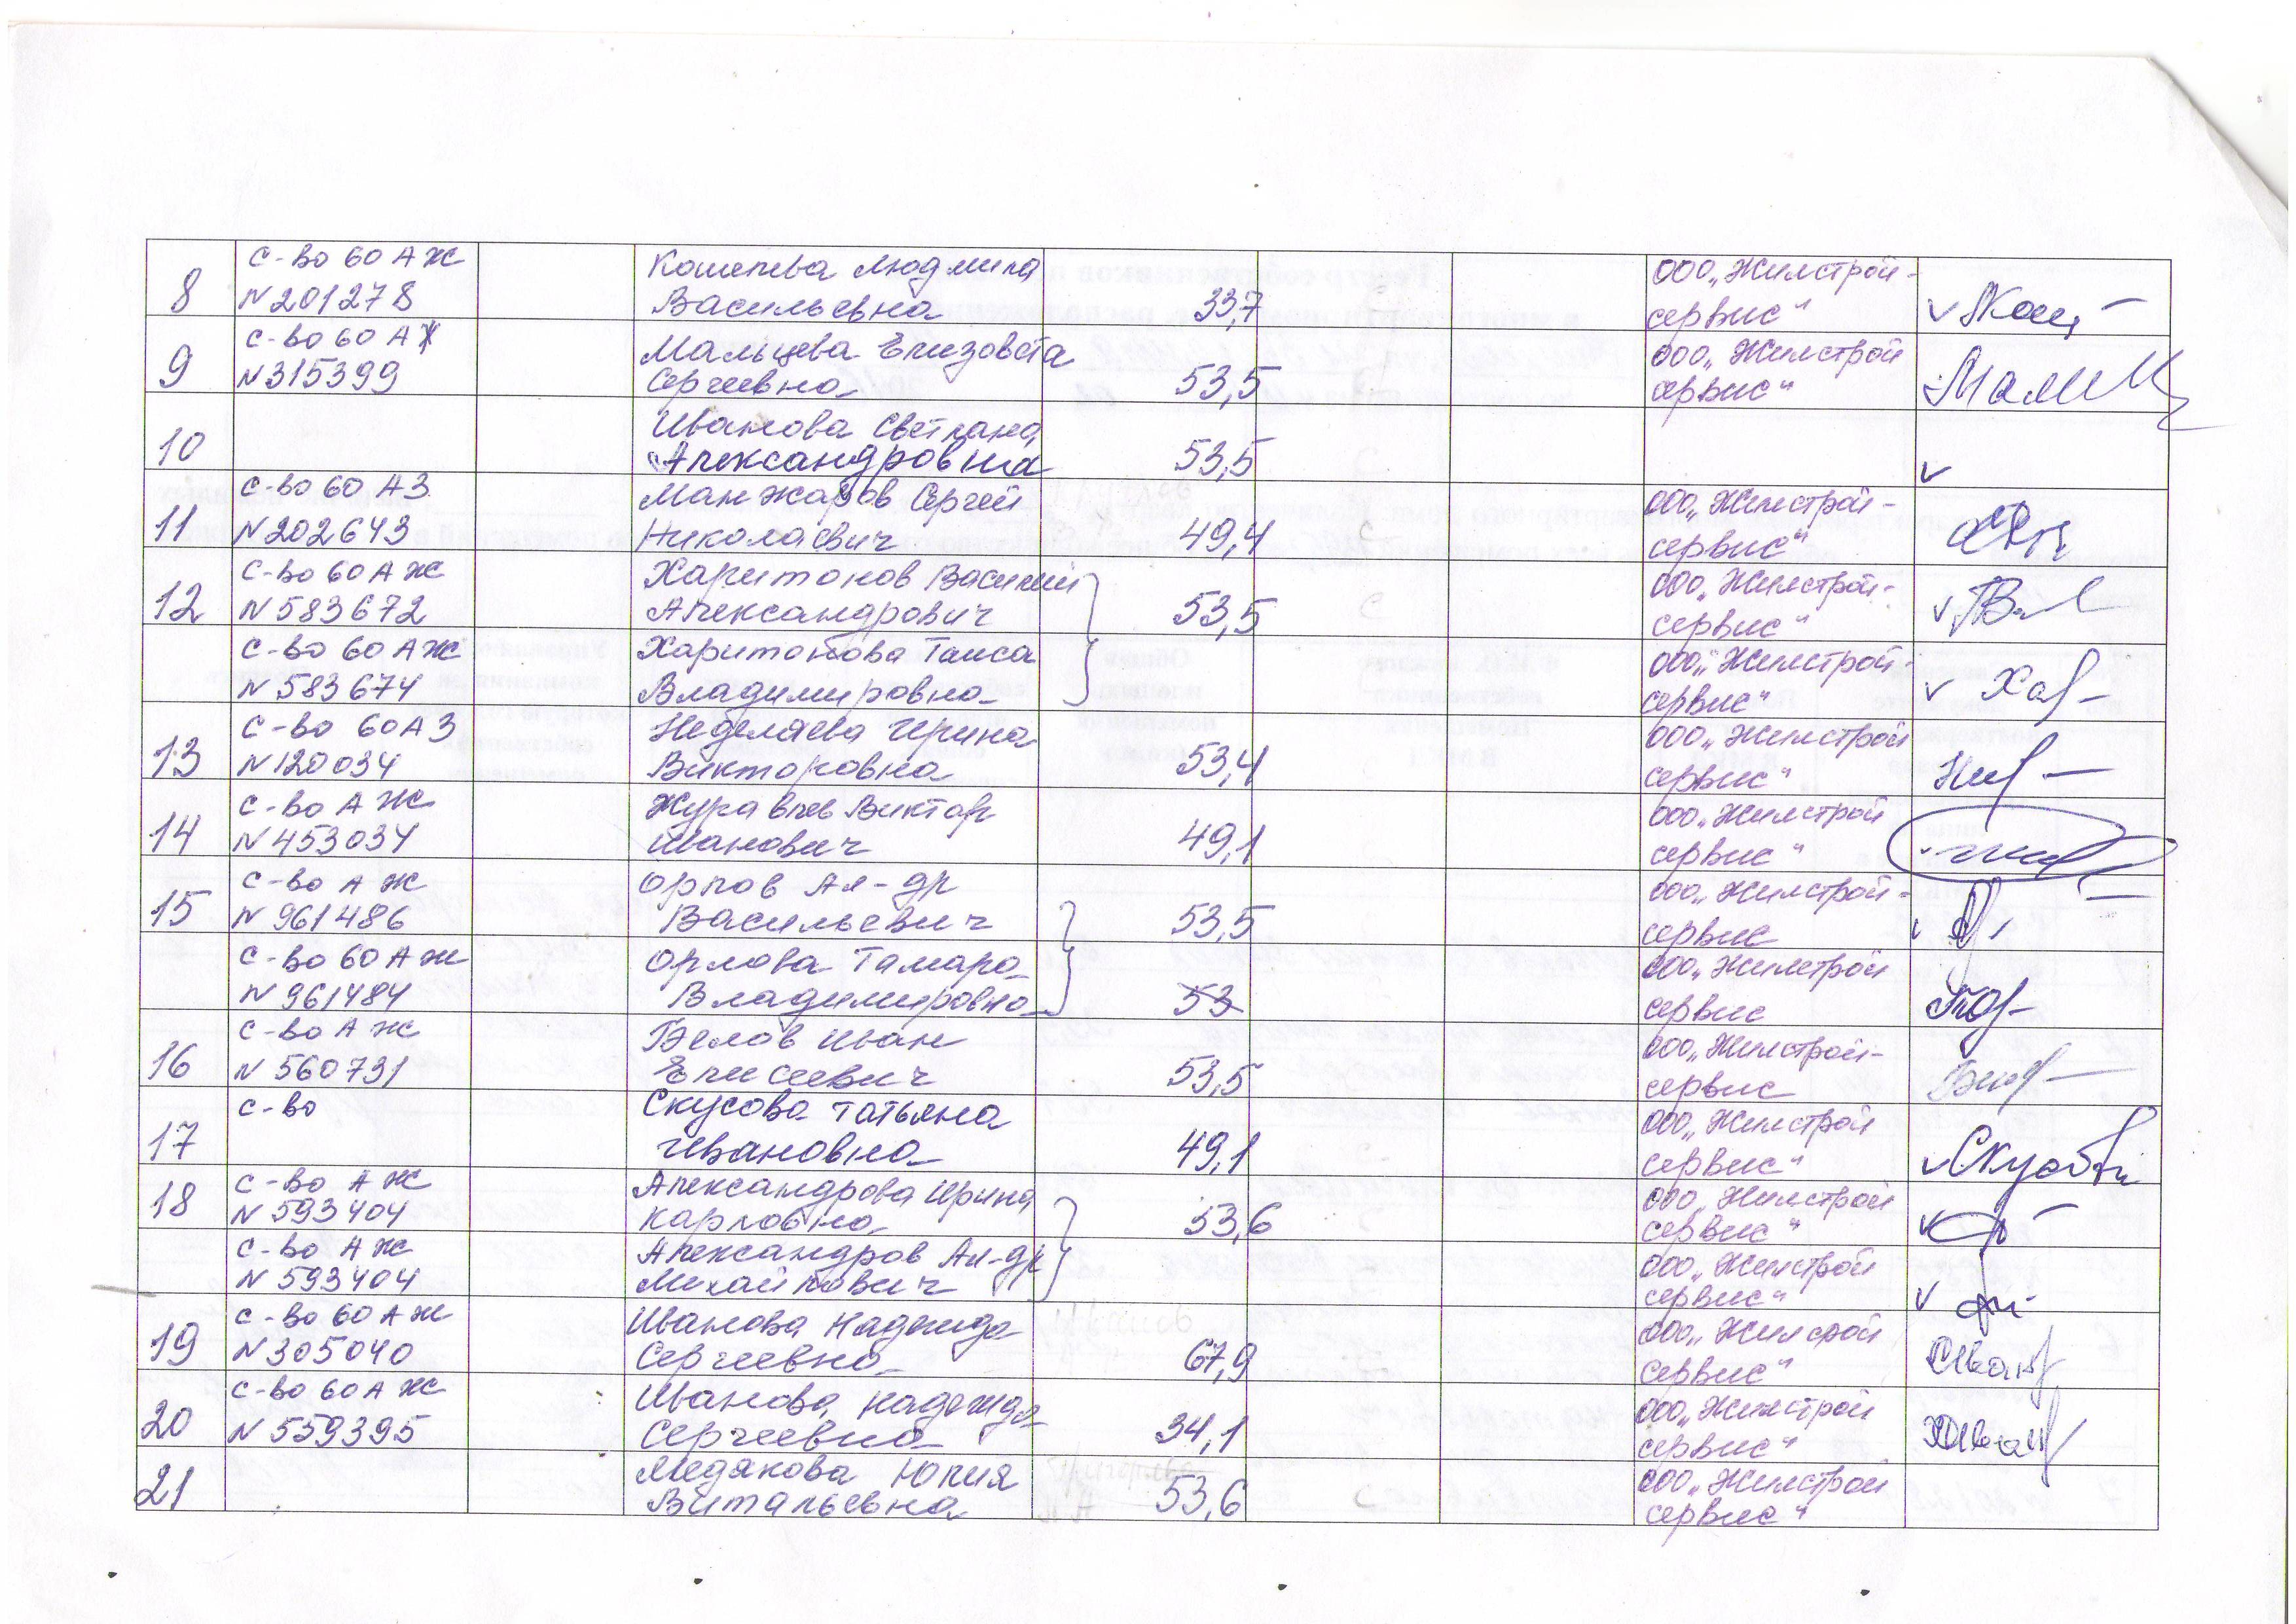 8 С-во 60 АЖ Кошелева Людмила ООО „Жилстрой-
N201278 Васильевна 33,7 сервис"
9 С-во 60 АЖ Мальцева Елизовета ООО „Жилстрой
N315399 Сергеевна 53,5 сервис"
10 Иванова Светлана
Александровна 53,5
11 С-во 60 АЗ Манжаров Сергей ООО „Жилстрой-
N202643 Николаевич 49,4 сервис"
12 С-во 60 АЖ Харитонов Василий ООО „Жилстрой-
N583672 Александрович 53,5 сервис"
С-во 60 АЖ Харитонова Таиса ООО „Жилстрой-
N583674 Владимировна сервис"
13 С-во 60 АЗ Неделяева Ирина ООО „Жилстрой
N120034 Викторовна 53,4 сервис"
14 С-во АЖ Журавлев Виктор ООО „Жилстрой
N453034 Иванович 49,1 сервис"
15 С-во АЖ Орлов Ал-др ООО „Жилстрой-
N961486 Васильевич 53,5 сервис
С-во 60 АЖ Орлова Тамара ООО „Жилстрой
N961484 Владимировна 53 сервис
16 С-во АЖ Белов Иван ООО „Жилстрой-
N560731 Елисеевич 53,5 сервис
17 С-во Скусова Татьяна ООО „Жилстрой
Ивановна 49,1 сервис"
18 С-во АЖ Александрова Ирина ООО „Жилстрой
N593404 Карловна 53,6 сервис"
С-во АЖ Александров Ал-др ООО „Жилстрой
N593404 Михайлович сервис"
19 С-во 60 АЖ Иванова Надежда ООО „Жилсрой
N305040 Сергеевна 67,9 сервис"
20 С-во 60 АЖ Иванова Надежда ООО „Жилстрой
N559395 Сергеевна 34,1 сервис"
21 Медякова Юлия ООО „Жилстрой
Витальевна 53,6 сервис"